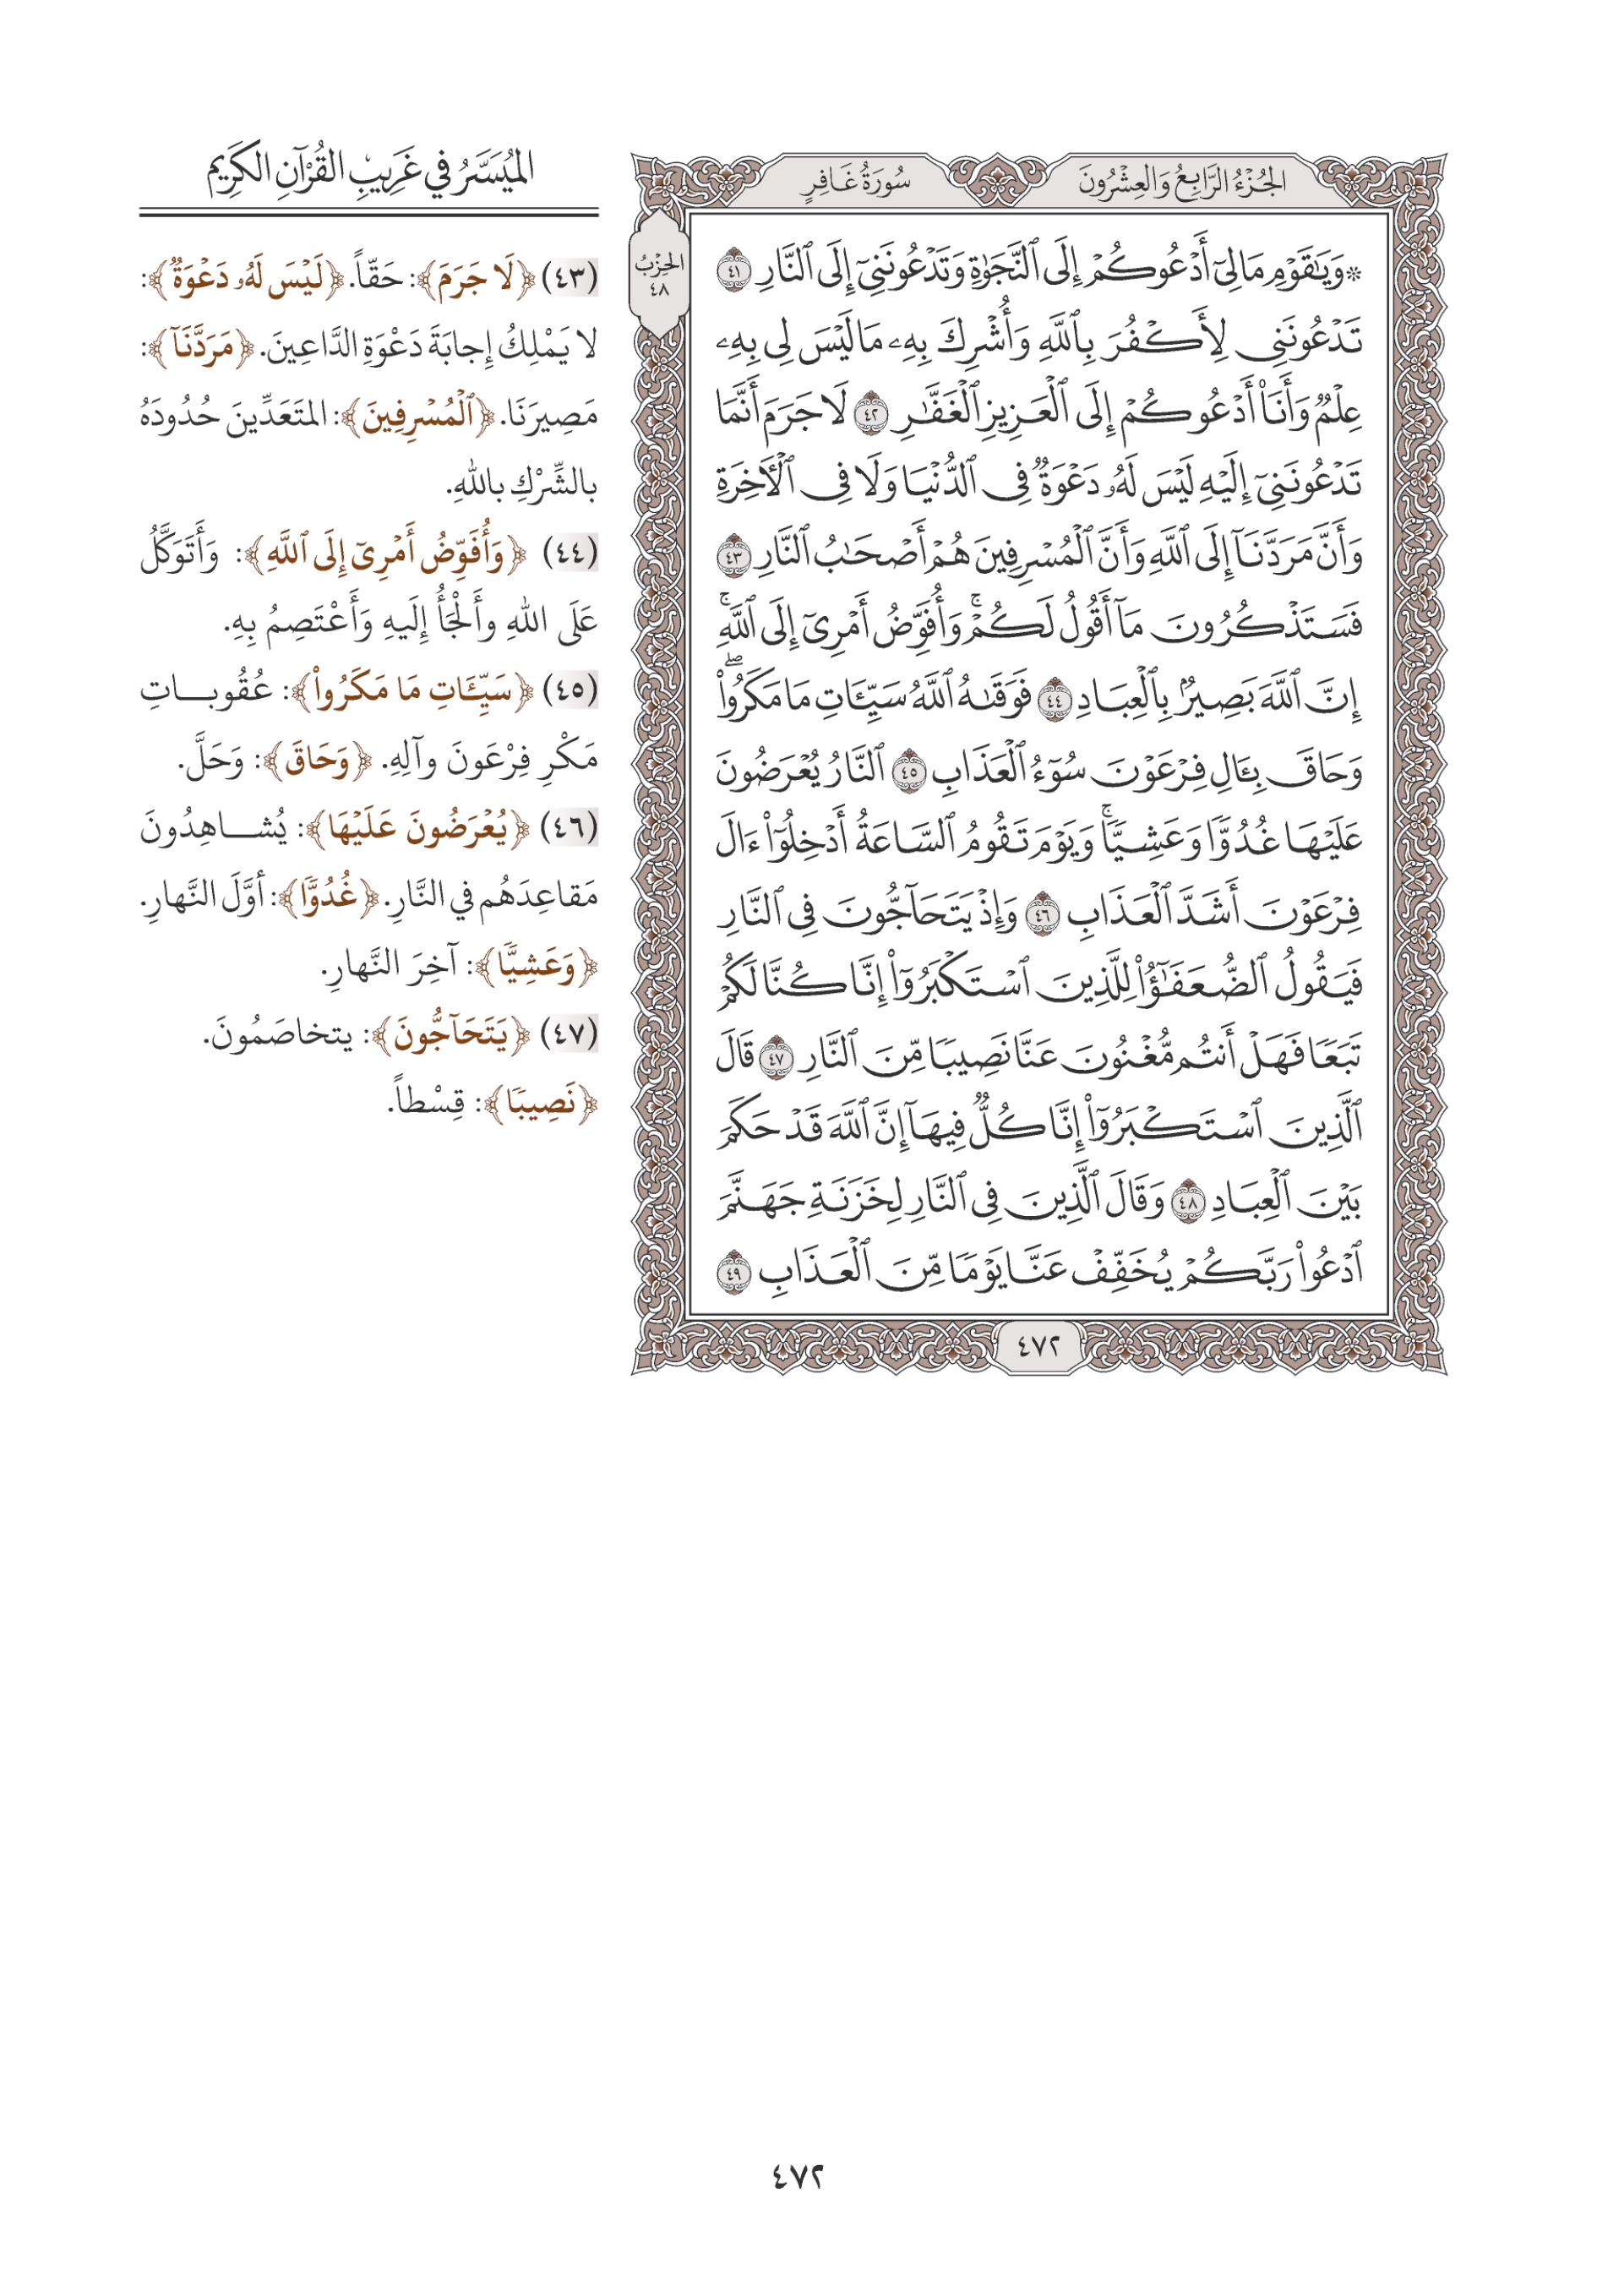 الجُزْءُ الرَّابِعُ وَالعِشْرُونَ
سُورَةُ غَافِرٍ
الحِزْبُ
٤٨
* وَيَٰقَوْمِ مَا لِيٓ أَدْعُوكُمْ إِلَى ٱلنَّجَوٰةِ وَتَدْعُونَنِيٓ إِلَى ٱلنَّارِ ٤١
تَدْعُونَنِي لِأَكْفُرَ بِٱللَّهِ وَأُشْرِكَ بِهِۦ مَا لَيْسَ لِي بِهِۦ
عِلْمٌ وَأَنَا۠ أَدْعُوكُمْ إِلَى ٱلْعَزِيزِ ٱلْغَفَّٰرِ ٤٢ لَا جَرَمَ أَنَّمَا
تَدْعُونَنِيٓ إِلَيْهِ لَيْسَ لَهُۥ دَعْوَةٌ فِي ٱلدُّنْيَا وَلَا فِي ٱلْأٓخِرَةِ
وَأَنَّ مَرَدَّنَآ إِلَى ٱللَّهِ وَأَنَّ ٱلْمُسْرِفِينَ هُمْ أَصْحَٰبُ ٱلنَّارِ ٤٣
فَسَتَذْكُرُونَ مَآ أَقُولُ لَكُمْۚ وَأُفَوِّضُ أَمْرِيٓ إِلَى ٱللَّهِۚ
إِنَّ ٱللَّهَ بَصِيرُۢ بِٱلْعِبَادِ ٤٤ فَوَقَىٰهُ ٱللَّهُ سَيِّـَٔاتِ مَا مَكَرُوا۟ۖ
وَحَاقَ بِـَٔالِ فِرْعَوْنَ سُوٓءُ ٱلْعَذَابِ ٤٥ ٱلنَّارُ يُعْرَضُونَ
عَلَيْهَا غُدُوًّا وَعَشِيًّاۚ وَيَوْمَ تَقُومُ ٱلسَّاعَةُ أَدْخِلُوٓا۟ ءَالَ
فِرْعَوْنَ أَشَدَّ ٱلْعَذَابِ ٤٦ وَإِذْ يَتَحَآجُّونَ فِي ٱلنَّارِ
فَيَقُولُ ٱلضُّعَفَٰٓؤُا۟ لِلَّذِينَ ٱسْتَكْبَرُوٓا۟ إِنَّا كُنَّا لَكُمْ
تَبَعًا فَهَلْ أَنتُم مُّغْنُونَ عَنَّا نَصِيبًا مِّنَ ٱلنَّارِ ٤٧ قَالَ
ٱلَّذِينَ ٱسْتَكْبَرُوٓا۟ إِنَّا كُلٌّ فِيهَآ إِنَّ ٱللَّهَ قَدْ حَكَمَ
بَيْنَ ٱلْعِبَادِ ٤٨ وَقَالَ ٱلَّذِينَ فِي ٱلنَّارِ لِخَزَنَةِ جَهَنَّمَ
ٱدْعُوا۟ رَبَّكُمْ يُخَفِّفْ عَنَّا يَوْمًا مِّنَ ٱلْعَذَابِ ٤٩
٤٧٢
المُيَسَّرُ في غَرِيبِ القُرْآنِ الكَرِيم
(٤٣) ﴿لَا جَرَمَ﴾: حَقّاً. ﴿لَيْسَ لَهُۥ دَعْوَةٌ﴾:
لا يَمْلِكُ إِجابَةَ دَعْوَةِ الدَّاعِينَ. ﴿مَرَدَّنَآ﴾:
مَصِيرَنَا. ﴿ٱلْمُسْرِفِينَ﴾: المتَعَدِّينَ حُدُودَهُ
بالشِّرْكِ باللهِ.
(٤٤) ﴿وَأُفَوِّضُ أَمْرِيٓ إِلَى ٱللَّهِ﴾: وَأَتَوَكَّلُ
عَلَى اللهِ وأَلْجَأُ إِلَيهِ وَأَعْتَصِمُ بِهِ.
(٤٥) ﴿سَيِّـَٔاتِ مَا مَكَرُوا۟﴾: عُقُوبـاتِ
مَكْرِ فِرْعَونَ وآلِهِ. ﴿وَحَاقَ﴾: وَحَلَّ.
(٤٦) ﴿يُعْرَضُونَ عَلَيْهَا﴾: يُشـاهِدُونَ
مَقاعِدَهُم في النَّارِ. ﴿غُدُوًّا﴾: أوَّلَ النَّهارِ.
﴿وَعَشِيًّا﴾: آخِرَ النَّهارِ.
(٤٧) ﴿يَتَحَآجُّونَ﴾: يتخاصَمُونَ.
﴿نَصِيبًا﴾: قِسْطاً.
٤٧٢